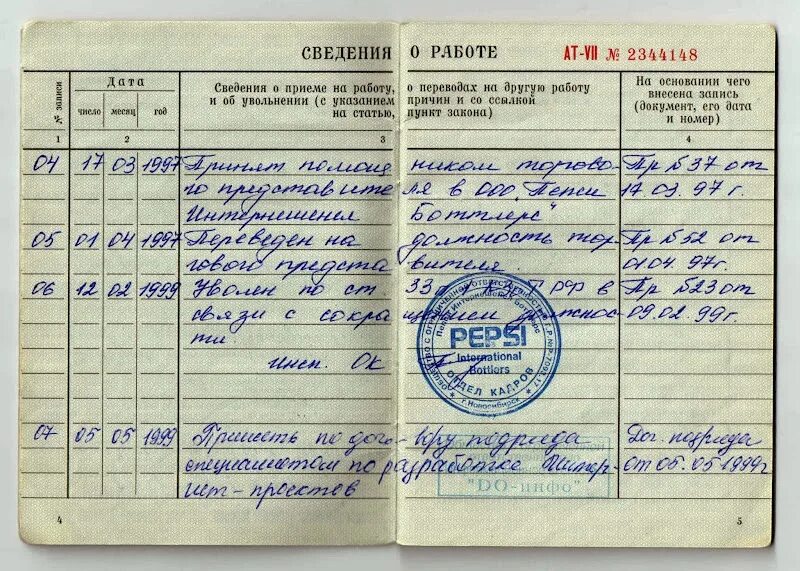 СВЕДЕНИЯ О РАБОТЕ
АТ-VII № 2344148
№ записи
Дата
число месяц год
Сведения о приеме на работу, о переводах на другую работу
и об увольнении (с указанием причин и со ссылкой
на статью, пункт закона)
На основании чего
внесена запись
(документ, его дата
и номер)
1 2 3 4
04 17 03 1997 Принят помощником торгово- Пр №37 от
го представителя в ООО "Пепси 17.03.97 г.
Интернешенел Боттлерс"
05 01 04 1997 Переведен на должность тор- Пр №52 от
гового представителя. 01.04.97г.
06 12 02 1999 Уволен по ст 33 РФ в Пр №23 от
связи с сокращением должнос- 09.02.99г.
ти.
Инсп. ОК
PEPSI
International
Bottlers
ОТДЕЛ КАДРОВ
г. Новосибирск
07 05 05 1999 Принять по договору подряда Дог. подряда
специалистом по разработке Интер- от 05.05.1999г
нет-проектов
"DO-инфо"
4 5